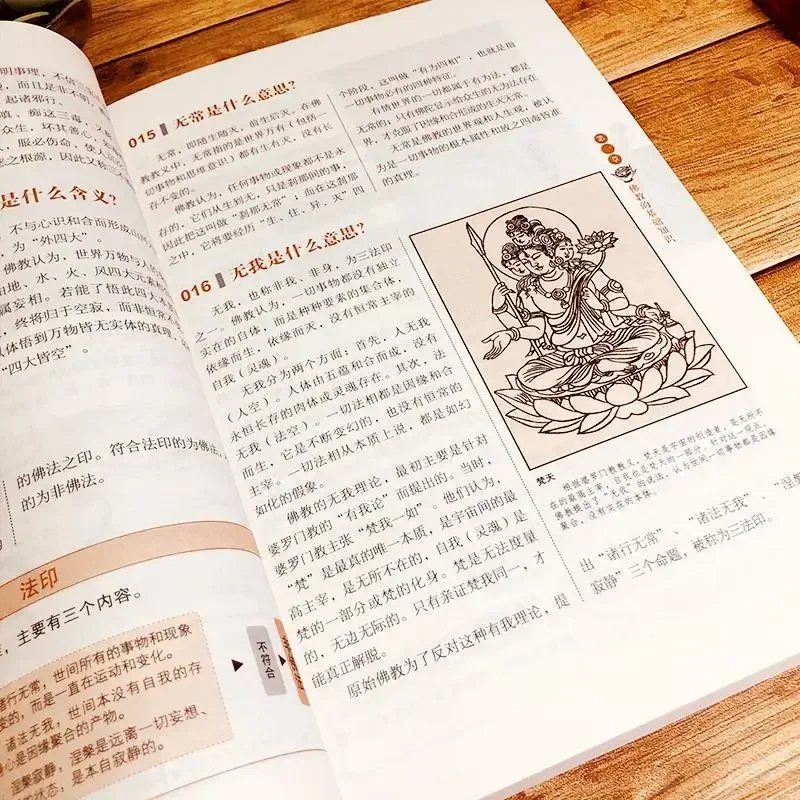 明事理,不信
而且是非不明,
起诸邪行。
嗔、痴这三毒,又
众生,坏其善心,
服必伤命,使人沉
之根源,因此又称
是什么含义?
不与心识和合而形成山河
为“外四大”。
佛教认为,世界万物与人的
由地、水、火、风四大元素
属妄相。若能了悟此四大本
终将归于空寂,而非恒常
以体悟到万物皆无实体的真理
“四大皆空”。
的佛法之印。符合法印的为佛法,
的为非佛法。
法印
主要有三个内容。
诸行无常,世间所有的事物和现象
变的,而是一直在运动和变化。
诸法无我,世间本没有自我的存
心是因缘聚合的产物。
涅槃寂静,涅槃是远离一切妄想、
的状态,是本自寂静的。
不符合
015 无常是什么意思?
无常,即随生随灭,值生后灭。在佛
教教义中,无常指的是世界万有(包括一
切事物和思维意识)都有生有灭,没有长
存不变的。
佛教认为,任何事物或现象都不是永
存的,它们从生到无,只是刹那间的事,
因此把这叫做“刹那无常”;而在这刹那
之中,它将要经历“生、住、异、灭”四
个阶段,这叫做“有为四相”,也就是指
一切事物必有的四种特征。
有情世界的一切都属于有为法,都是
无常的,只有佛陀显示给众生的无为法存在
界,才克服了因缘和合形成的生灭无常。
无常是佛教的世界观和人生观,被认
为是一切事物的根本属性和放之四海皆准
的真理。
016 无我是什么意思?
无我,也称非我、非身,为三法印
之一。佛教认为,一切事物都没有独立
实在的自体,而是种种要素的集合体,
依缘而生,依缘而灭,没有恒常主宰的
自我(灵魂)。
无我分为两个方面:首先,人无我
(人空)。人体由五蕴和合而成,没有
永恒长存的肉体或灵魂存在。其次,法
无我(法空)。一切法相都是因缘和合
而生,它是不断变幻的,也没有恒常的
主宰。一切法相从本质上说,都是如幻
如化的假象。
佛教的无我理论,最初主要是针对
婆罗门教的“有我论”而提出的。当时,
婆罗门教主张“梵我一如”。他们认为,
“梵”是最真的唯一本质,是宇宙间的最
高主宰,是无所不在的,自我(灵魂)是
梵的一部分或梵的化身。梵是无法度量
的,无边无际的。只有亲证梵我同一,才
能真正解脱。
原始佛教为了反对这种有我理论,提
梵天
根据婆罗门教教义,梵天是宇宙的创造者,是无所不
在的最高主宰,自我也是梵天的一部分。针对这一观点,
佛教提出了“无我”的说法,认为世间一切事物都是因缘
聚合,没有实在的本体。
出“诸行无常”、“诸法无我”、“涅槃
寂静”三个命题,被称为三法印。
第一章
佛教的基础知识